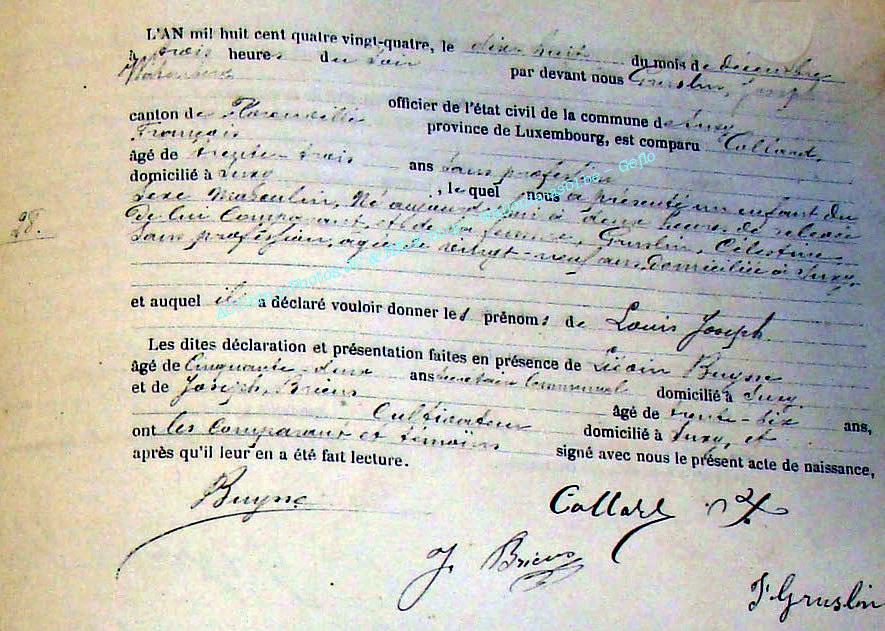 L'AN mil huit cent quatre vingt-quatre, le dix huit du mois de décembre
à trois heures du soir par devant nous Gruslin, Joseph
officier de l'état civil de la commune de Suxy
canton de Florenville province de Luxembourg, est comparu Collard,
François
âgé de trente-trois ans sans profession
domicilié à Suxy, le quel nous a présenté un enfant du
28.
sexe masculin, né aujourd'hui à deux heures de relevée
de lui comparant, et de sa femme, Gruslin, Célestine
sans profession, agée de vingt-neuf ans, domiciliée à Suxy,
et auquel il a déclaré vouloir donner les prénoms de Louis Joseph.
Les dites déclaration et présentation faites en présence de Buysse
âgé de Cinquante-deux ans secrétaire communal domicilié à Suxy
et de Joseph, Briens
Cultivateur âgé de trente-six ans,
domicilié à Suxy, et
ont les comparant et témoins signé avec nous le présent acte de naissance,
après qu'il leur en a été fait lecture.
Buysse
Collard
J. Briens
J. Gruslin